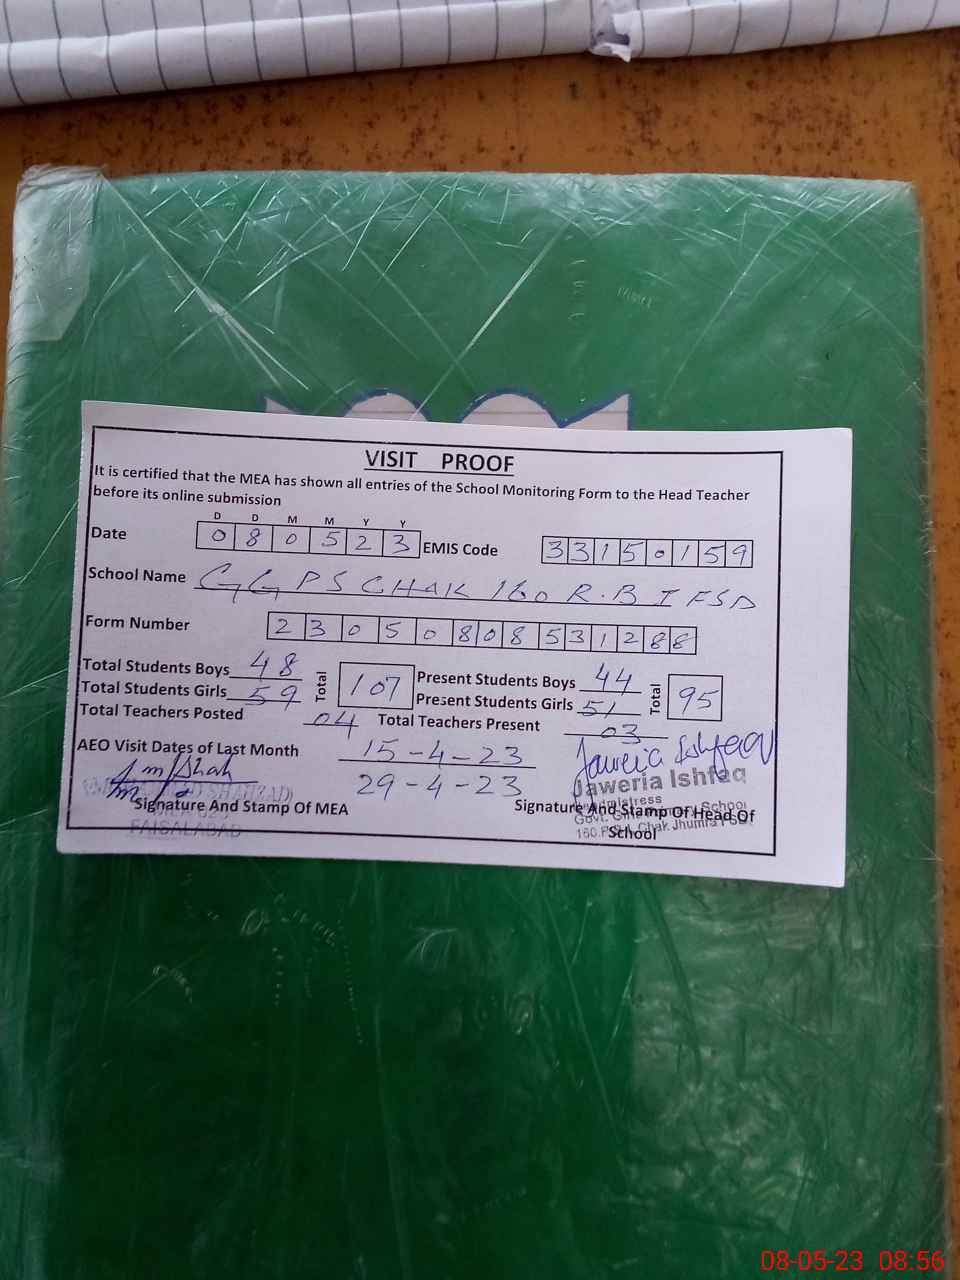 VISIT PROOF
It is certified that the MEA has shown all entries of the School Monitoring Form to the Head Teacher
before its online submission
D D M M Y Y
Date 0 8 0 5 2 3 EMIS Code 3 3 1 5 0 1 5 9
School Name GGPS CHAK 160 R.B I FSD
Form Number 2 3 0 5 0 8 0 8 5 3 1 2 8 8
Total Students Boys 48 Total 107 Present Students Boys 44 Total 95
Total Students Girls 59 Present Students Girls 51
Total Teachers Posted 04 Total Teachers Present 03
AEO Visit Dates of Last Month 15-4-23
29-4-23
Jaweria Ishfaq
Jaweria Ishfaq
Signature And Stamp Of MEA
FAISALABAD
Signature And Stamp Of Head Of
School
Govt. Girls Primary School
Chak Jhumra
08-05-23 08:56